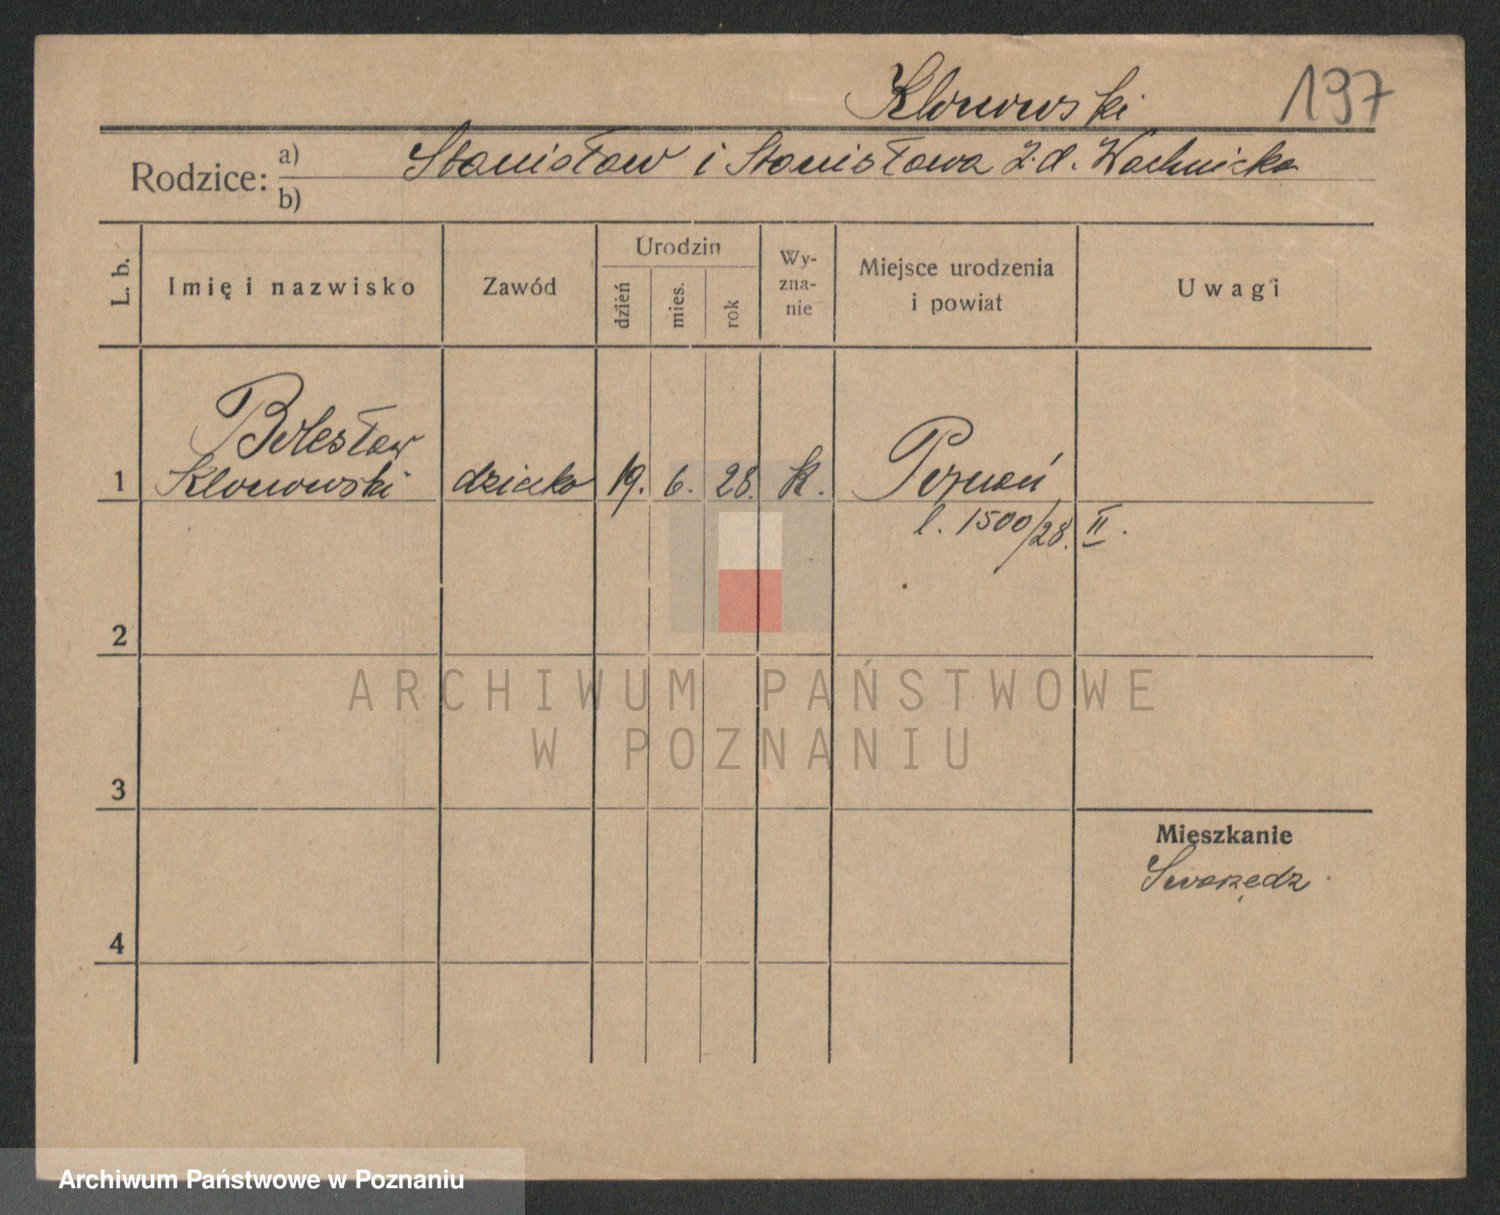 Klonowski
197
Rodzice:
a) Stanisław i Stanisława z. d. Wachnicka
b)
L. b.
Imię i nazwisko
Zawód
Urodzin
dzień
mies.
rok
Wy-
zna-
nie
Miejsce urodzenia
i powiat
Uwagi
Bolesław
1 Klonowski dziecko 19. 6. 28. k. Poznań
l. 1500/28. II.
2
ARCHIWUM PAŃSTWOWE
W POZNANIU
3
Mieszkanie
Swarzędz
4
Archiwum Państwowe w Poznaniu